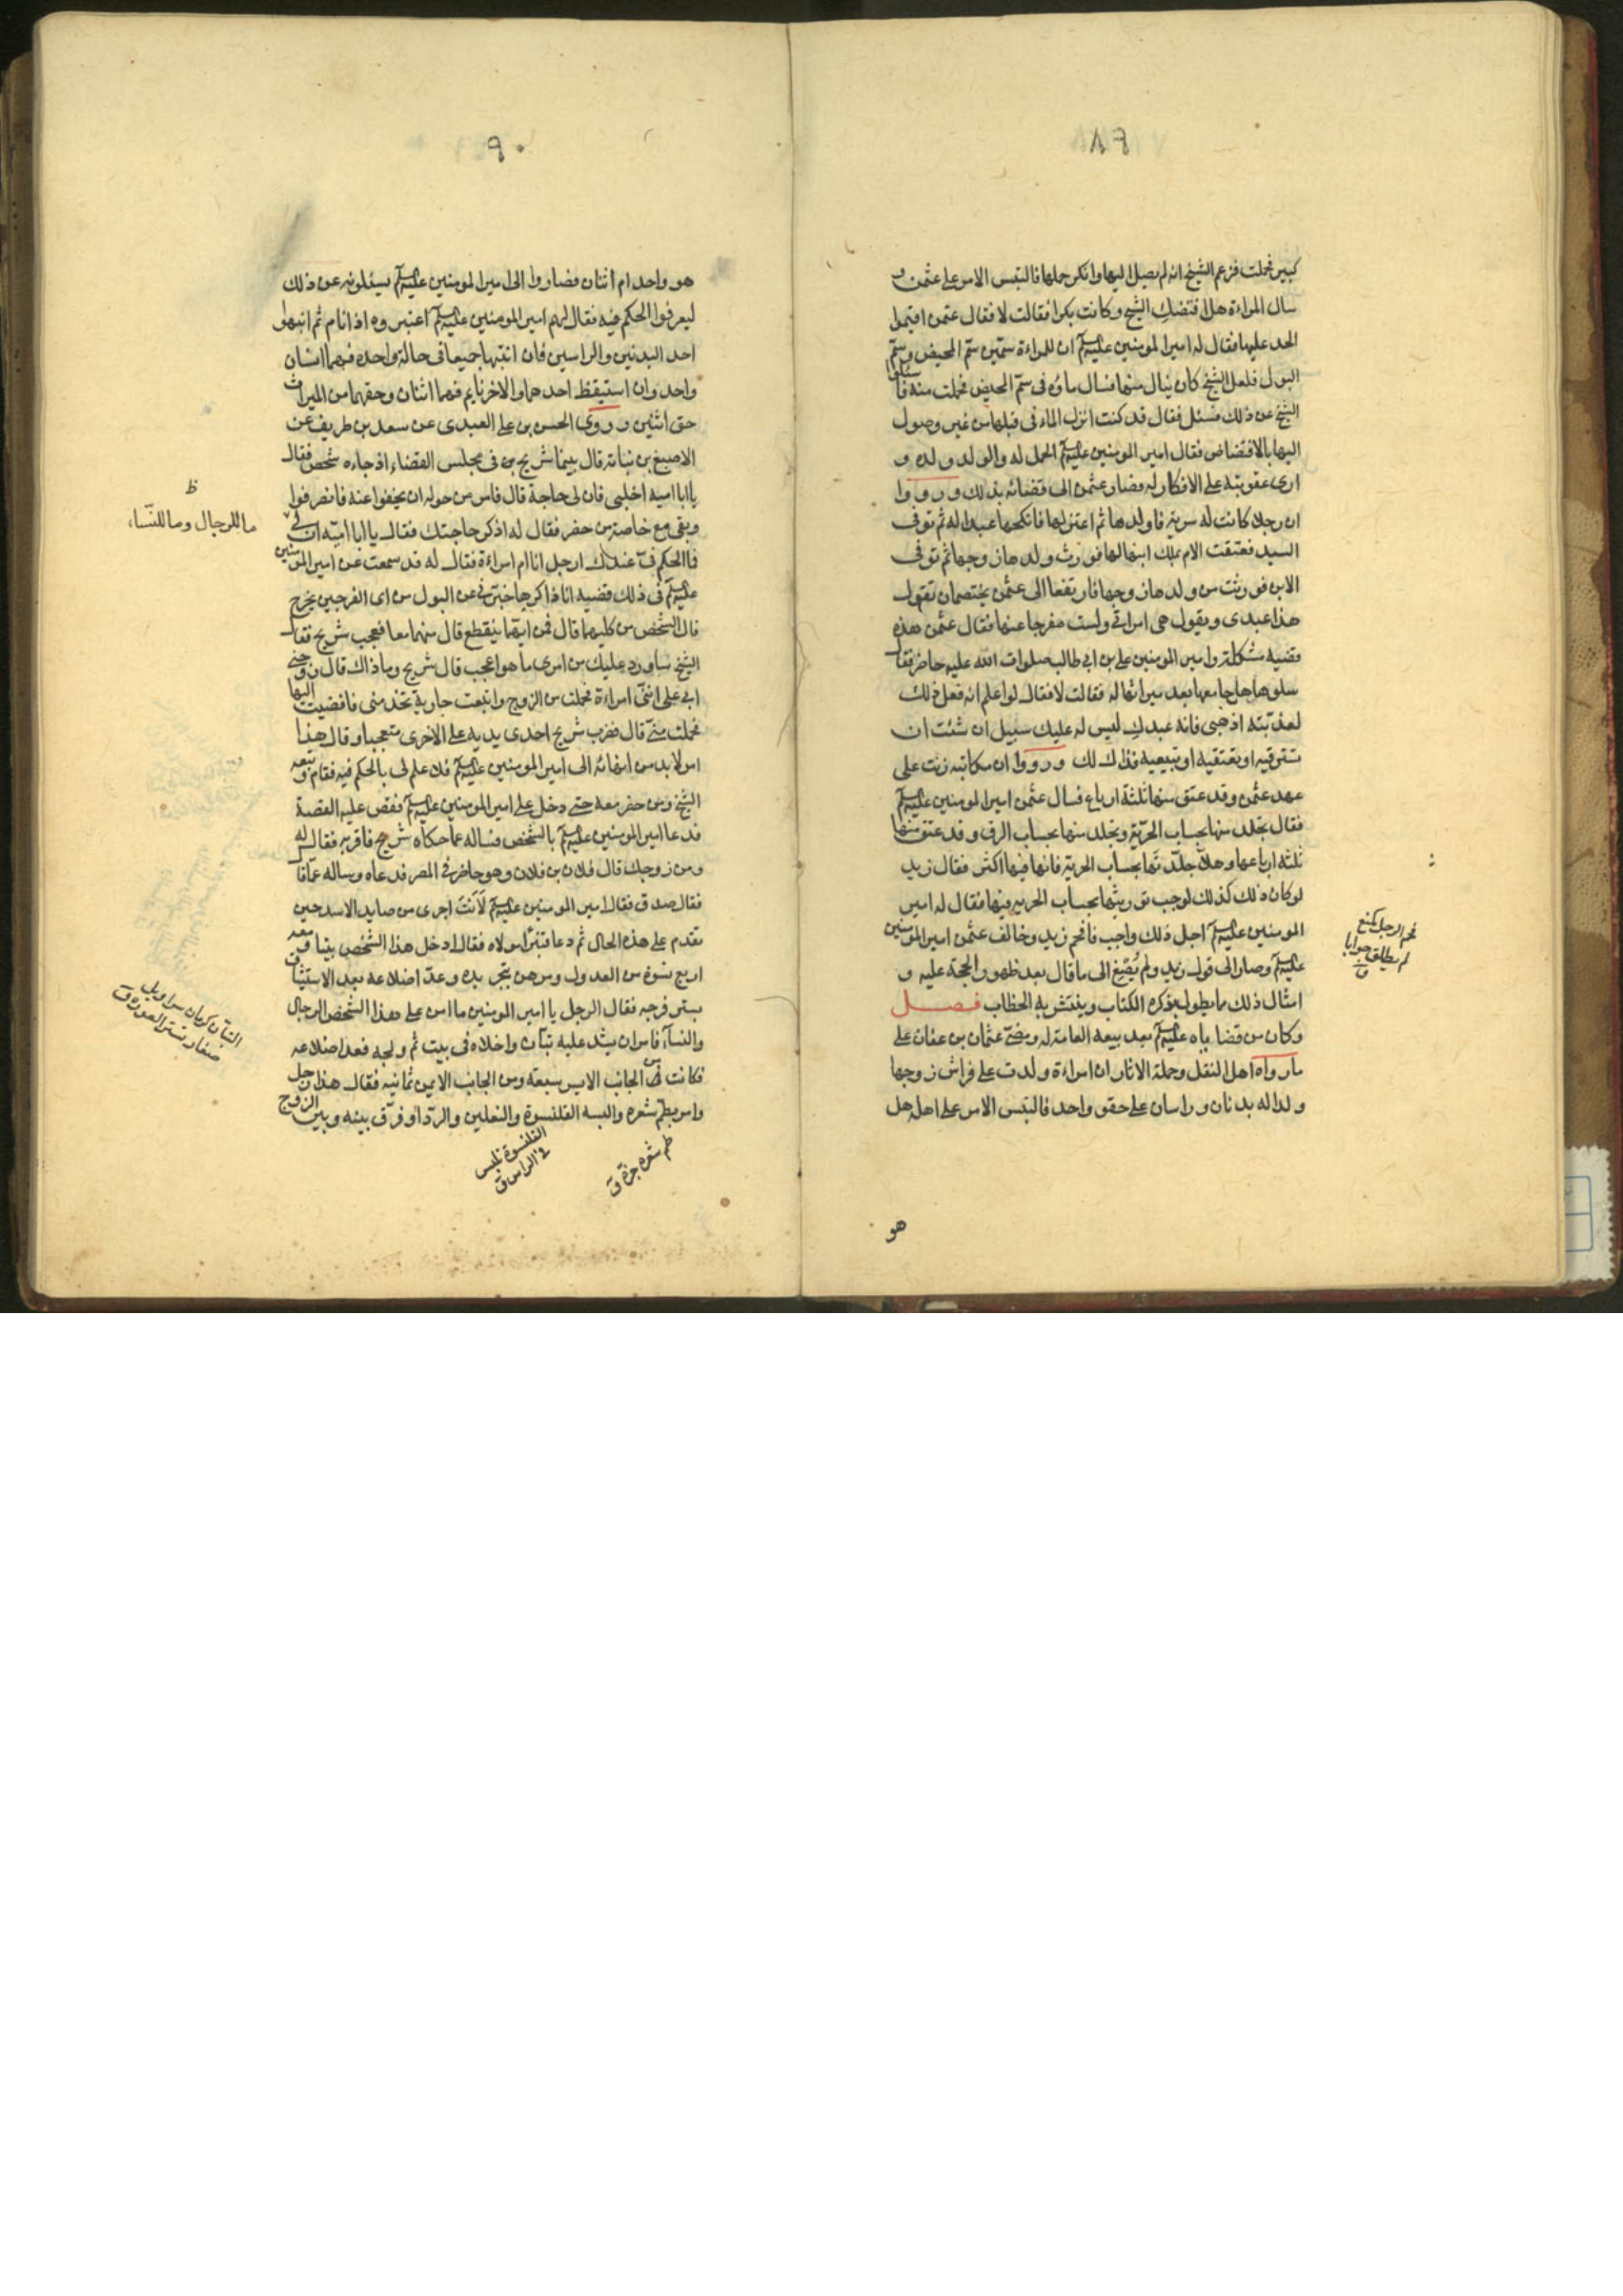 ٨٩
كبير فحملت فزعم الشيخ انه لم يصل اليها وانكر حملها فالتبس الامر على عثمن و
سال المراءة هل افتضك الشيخ وكانت بكرا فقالت لا فقال عثمن اقيموا
الحد عليها فقال له امير المومنين عليه السلم ان للمراءة سمّين سمّ المحيض وسمّ
البول فلعل الشيخ كان ينال منها فسال ماؤه فى سمّ المحيض فحملت منه فاسئلوا
الشيخ عن ذلك فسئل فقال قد كنت انزل الماء فى قبلها من غير وصول
اليها بالافتضاض فقال امير المومنين عليه السلم الحمل له والولد ولده و
ارى عقوبته على الانكار له فصار عثمن الى قضائه بذلك ورووا
ان رجلا كانت له سرية فاولدها ثم اعتزلها فانكحها عبدا له ثم توفى
السيد فعتقت الام بملك ابنها لها فورث ولدها زوجها ثم توفى
الابن فورثت من ولدها زوجها فارتفعا الى عثمن يختصمان تقول
هذا عبدى ويقول هى امراتى ولست مفرجا عنها فقال عثمن هذه
قضيه مشكلة وامير المومنين على بن ابى طالب صلوات الله عليه حاضر فقال
سلوها هل جامعها بعد ميراثها له فقالت لا فقال لو اعلم انه فعل ذلك
لعذبته اذهبى فانه عبدك ليس له عليك سبيل ان شئت ان
تسترقيه او تعتقيه او تبيعيه فذاك لك ورووا ان مكاتبه زنت على
عهد عثمن وقد عتق منها ثلثة ارباع فسال عثمن امير المومنين عليه السلم
فقال تجلد منها بحساب الحرّية وتجلد منها بحساب الرق وقد عتق منها
ثلثه ارباعها وهلّا جلّدتها بحساب الحرية فانها فيها اكثر فقال زيد
لو كان ذلك كذلك لوجب توريثها بحساب الحريه فيها فقال له امير
المومنين عليه السلم اجل ذلك واجب فافحم زيد وخالف عثمن امير المومنين
عليه السلم وصار الى قول زيد ولم يُصْغِ الى ما قال بعد ظهور الحجة عليه و
امثال ذلك مما يطول بذكره الكتاب وينتشر به الخطاب فصل
وكان من قضاياه عليه السلم بعد بيعه العامة له ومضىّ عثمان بن عفان على
ما رواه اهل النقل وحملة الاثار ان امراءة ولدت على فراش زوجها
ولدا له بدنان وراسان على حقو واحد فالتبس الامر على اهله هل
هو
فحم الرجل كمنع
لم يطلق جوابا
ق
٩٠
هو واحد ام اثنان فصاروا الى امير المومنين عليه السلم يسئلونه عن ذلك
ليعرفوا الحكم فيه فقال لهم امير المومنين عليه السلم اعتبروه اذا نام ثم انبهوا
احد البدنين والراسين فان انتبها جميعا فى حالة واحده فهما انسان
واحد وان استيقظ احدهما والاخر نايم فهما اثنان وحقهما من الميراث
حق اثنين وروى الحسن بن على العبدى عن سعد بن طريف عن
الاصبغ بن نباته قال بينما شريح بن فى مجلس القضاء اذ جاءه شخص فقال
يا ابا اميه اخلنى فان لى حاجة قال فامر من حوله ان يخفوا عنه فانصرفوا
وبقى مع خاصة من حضر فقال له اذكر حاجتك فقال يا ابا اميّه ان لى
فما الحكم فىّ عندك ارجل انا ام امراءة فقال له قد سمعت عن امير المومنين
عليه السلم فى ذلك قضيه انا ذاكرها خبرنى عن البول من اى الفرجين يخرج
قال الشخص من كليهما قال فمن ايهما ينقطع قال منهما معا فعجب شريح فقال
الشيخ ساورد عليك من امرى ما هو اعجب قال شريح وما ذاك قال زوجنى
ابى على انّنى امراءة فحملت من الزوج وابتعت جارية تخدمنى فافضيت اليها
فحملت منّى قال فضرب شريح احدى يديه على الاخرى متعجبا وقال هذا
امر لا بد من انهائه الى امير المومنين عليه السلم فلا علم لى بالحكم فيه فقام وتبعه
الشيخ ومن حضر معه حتى دخل على امير المومنين عليه السلم فقص عليه القصة
فدعا امير المومنين عليه السلم بالشخص فساله عما حكاه شريح فاقر به فقال له
ومن زوجك قال فلان بن فلان وهو حاضر فى المصر فدعاه وساله عمّا قال
فقال صدق فقال امير المومنين عليه السلم لَاَنتَ اجرى من صايد الاسد حين
تقدم على هذه الحال ثم دعا قنبرا مولاه فقال ادخل هذا الشخص بيتا ومعه
اربع نسوة من العدول ومرهن بتجريده وعدّ اضلاعه بعد الاستيثاق
بستر فرجه فقال الرجل يا امير المومنين ما امن على هذا الشخص الرجال
والنسآء فامر ان يشد عليه تبّان واخلاه فى بيت ثم ولجه فعد اضلاعه
فكانت من الجانب الايسر سبعة ومن الجانب الايمن ثمانيه فقال هذا رجل
وامر بطمّ شعره والبسه القلنسوة والنعلين والرّدا وفرّق بينه وبين الزوج
ظ
ما للرجال وما للنّساء
التبّان كرمان سراويل
صغار يستر العورة ق
القلنسوة تلبس
فى الراس ق
طم شعره جزه ق